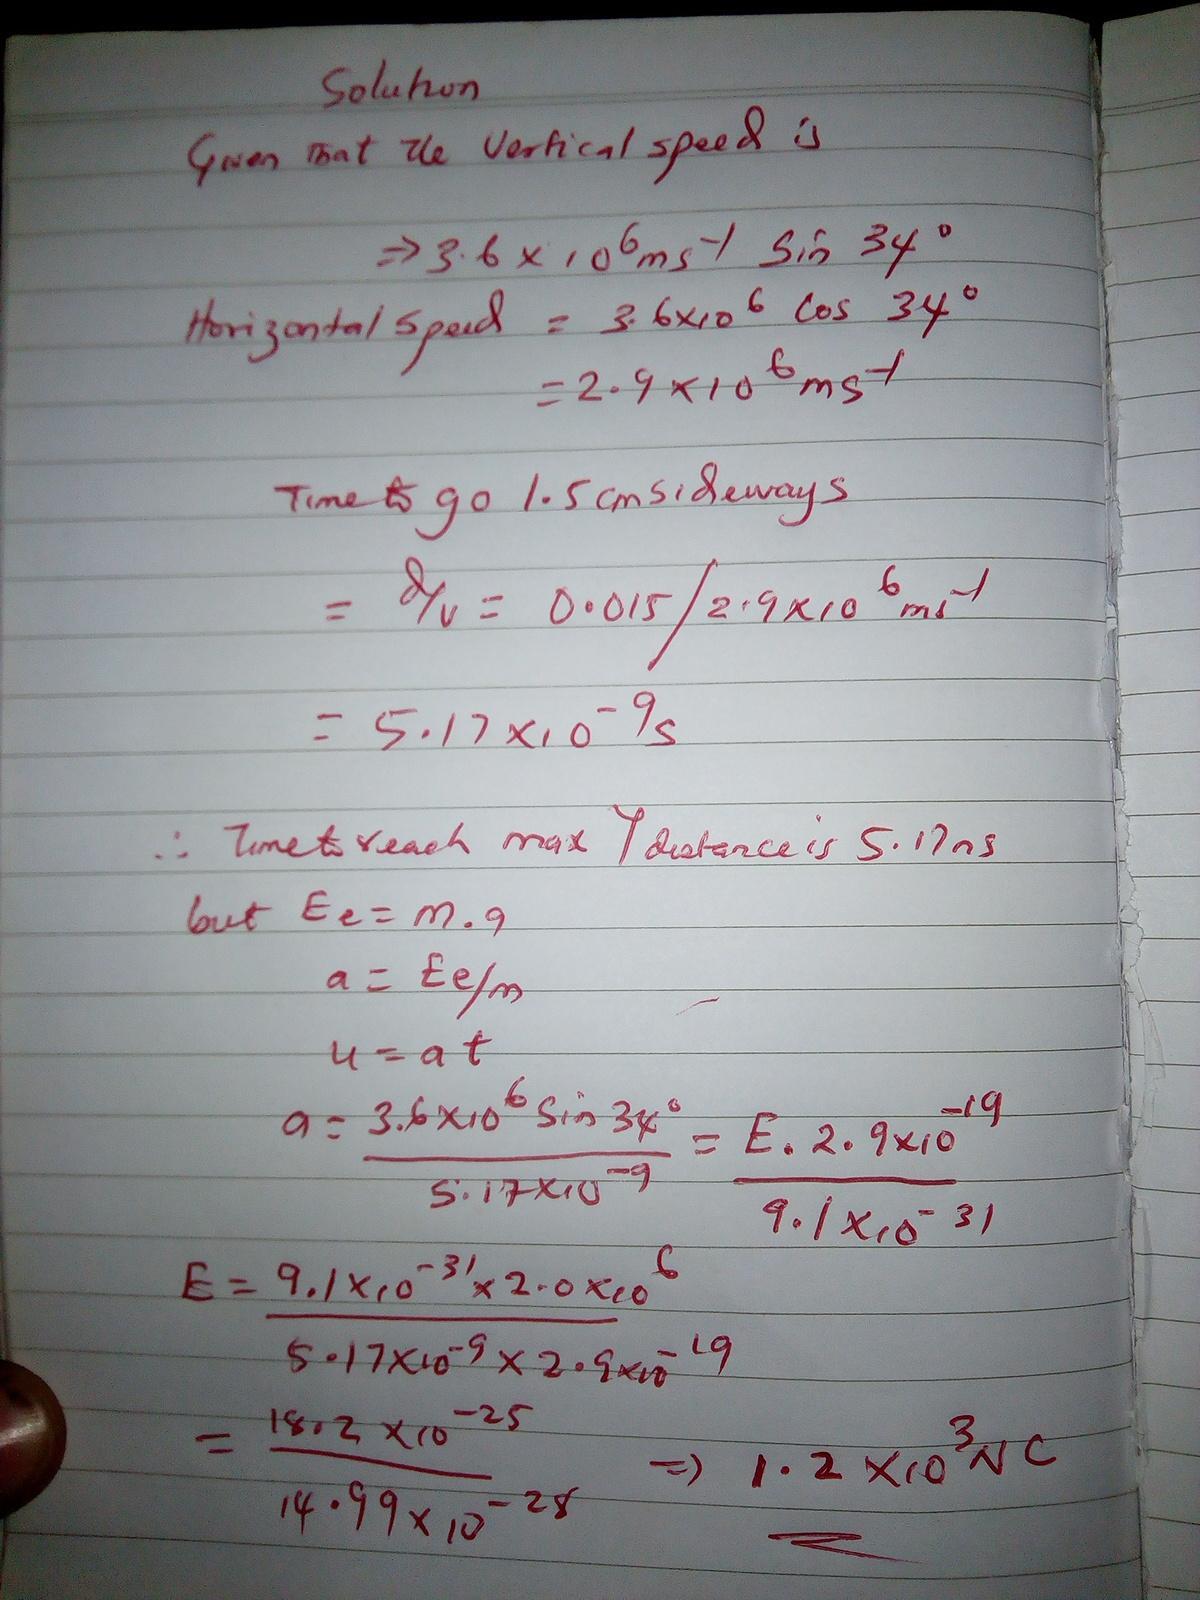 Solution
Given that the Vertical speed is
⇒ 3.6 × 10⁶ms⁻¹ Sin 34°
Horizontal Speed = 3.6×10⁶ Cos 34°
= 2.9 × 10⁶ ms⁻¹
Time to go 1.5 cm sideways
= d/v = 0.015/2.9×10⁶ ms⁻¹
= 5.17 × 10⁻⁹s
∴ Time to reach max Y distance is 5.17ns
but Ee = m.a
a = Ee/m
u = at
a = 3.6×10⁶ Sin 34° / 5.17×10⁻⁹ = E. 2.9×10⁻¹⁹ / 9.1×10⁻³¹
E = 9.1×10⁻³¹ × 2.0×10⁶ / 5.17×10⁻⁹ × 2.9×10⁻¹⁹
= 18.2 ×10⁻²⁵ / 14.99×10⁻²⁸ ⇒ 1.2 ×10³ N C